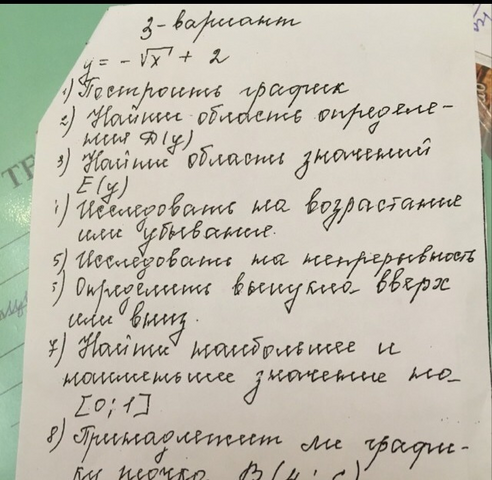 3-вариант
y = -√x + 2
1) Построить график
2) Найти область определе-
ния D(y)
3) Найти область значений
E(y)
4) Исследовать на возрастание
или убывание.
5) Исследовать на непрерывность
6) Определить выпукла вверх
или вниз.
7) Найти наибольшее и
наименьшее значение на
[0; 1]
8) Принадлежит ли графи-
ку точка B(4;